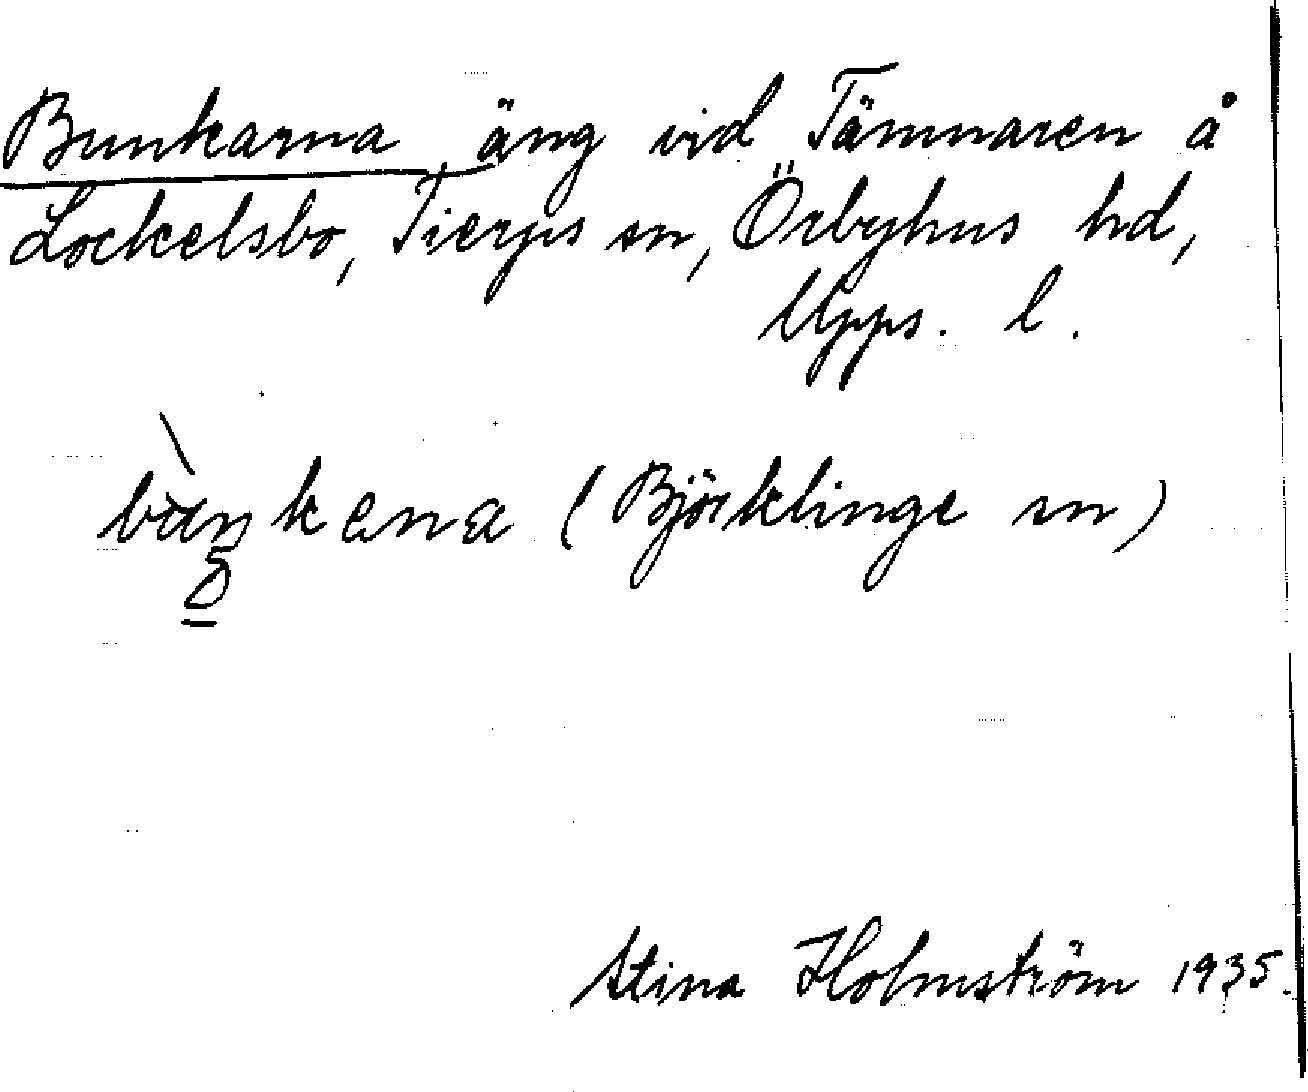 Bunkarna äng vid Tämnaren å
Lockelsbo, Tierps sn, Örbyhus hd,
Upps. l.
(Björklinge sn)
Stina Holmström 1935.